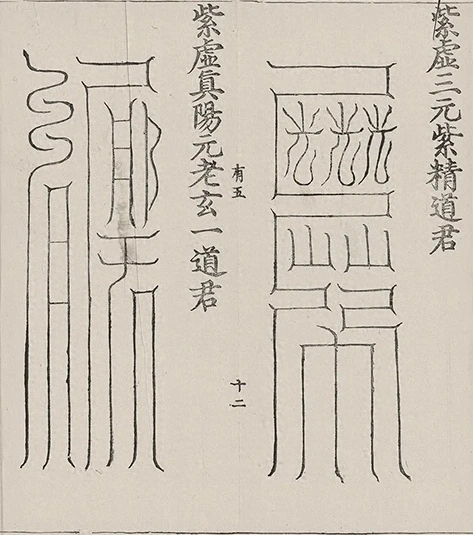 紫虛三元紫精道君
有五
十二
紫虛真陽元老玄一道君